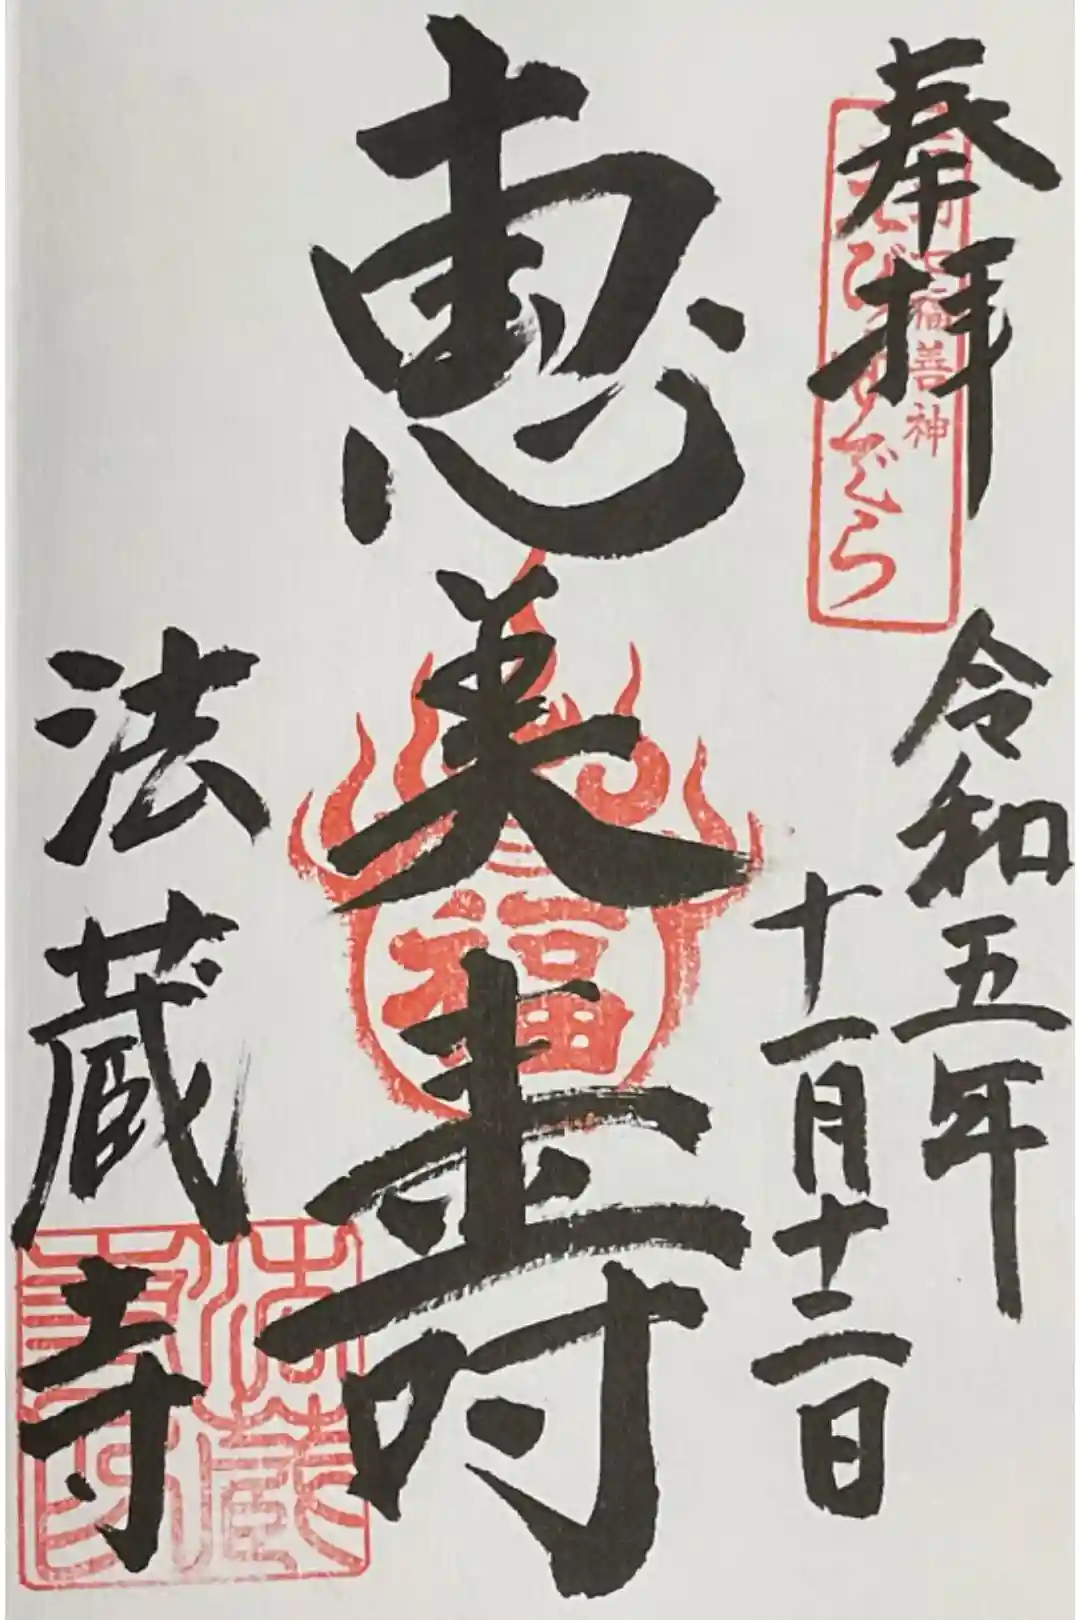 奉拝
福善神
えびすでら
令和五年
十一月十二日
恵美寿
福
法蔵寺